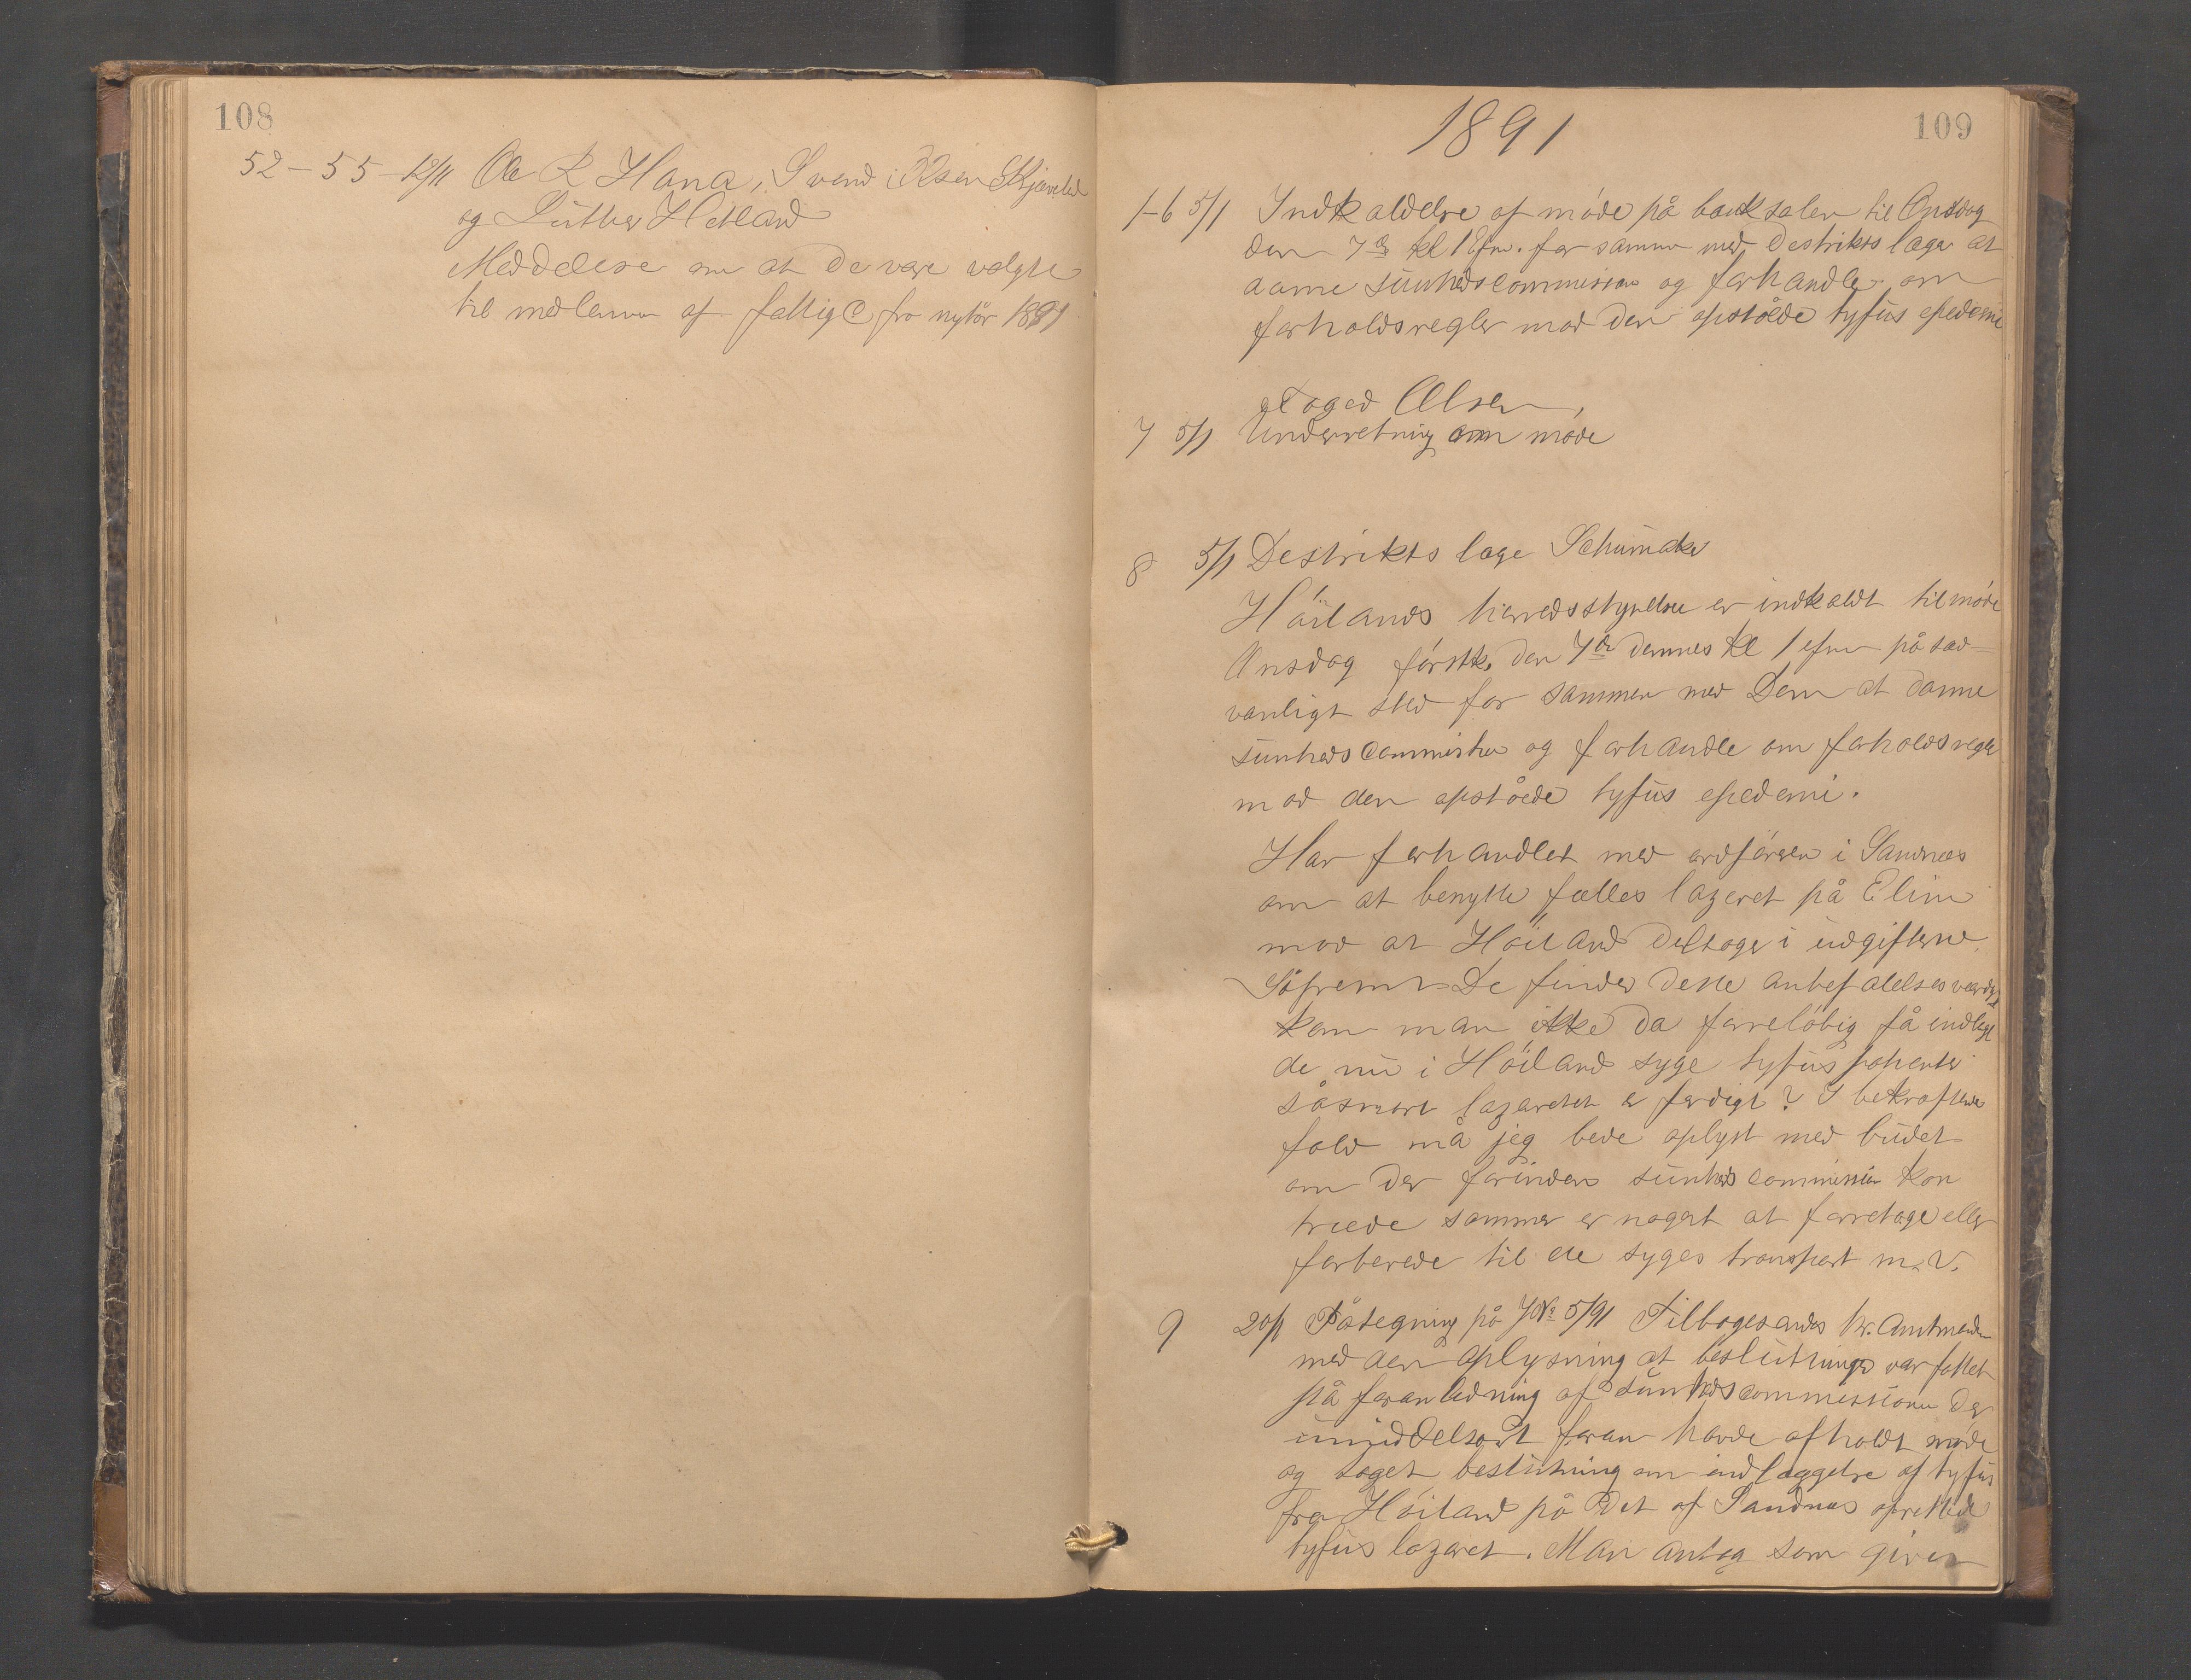 108
52 – 55 – 12/11 Ole R Hana, Svend Olsen Skjæveland
og Luther Hetland
Meddelese om at de vare valgte
til medlemmer af fattigC fra nytår 1891
109
1891
1-6 5/1 Indkaldelse af möde på banksalen til Onsdag
den 7de kl 1 Efm. for sammen med Destriktslægen at
danne sunhedscommission og forhandle om
forholdsregler mod den opståede tyfus epedemi
Foged Olsen,
7 5/1 Underretning om möde
8 5/1 Destrikts læge Schumaker
Höilands herredsstyrelse er indkaldt til möde
Onsdag förstk. den 7de dennes kl 1 efm på sæd-
vanligt sted for sammen med Dem at danne
sunhedscommission og forhandle om forholdsregler
mod den opståede tyfus epedemi.
Har forhandlet med ordföreren i Sandnæs
om at benytte fælles lazeret på Elim
mod at Höiland deltager i udgifterne.
Såfremt De finder dette anbefalelsesværdigt
kan man ikke da foreløbig få indlagt
de nu i Höiland syge tyfus patienter
såsnart lazaretet er færdigt? I bekræftende
fald må jeg bede oplyst med budet
om der forinden sunhedscommission kan
træde sammen er noget at foretage eller
forberede til de syges transport m.v.
9 20/1 Påtegning på JNo 5/91 Tilbagesendes hr. Amtmanden
med den oplysning at beslutningen var fattet
på foranledning af sunhedscommissionen der
umiddelbart foran havde afholdt möde
og taget beslutning om indlæggelse af tyfus
fra Höiland på det af Sandnæs oprettede
tyfus lazeret. Man antog som given